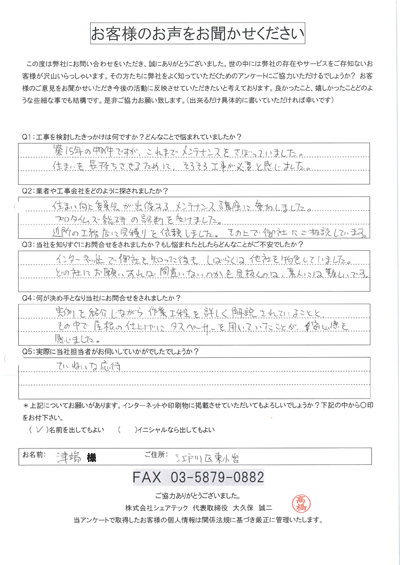 お客様のお声をお聞かせください
この度は弊社にお問い合わせをいただき、誠にありがとうございました。世の中には弊社の存在やサービスをご存知ないお
客様が沢山いらっしゃいます。その方たちに弊社をよく知っていただくためのアンケートにご協力いただけるでしょうか？ お客
様のご意見をお聞かせいただき今後の活動に反映させていただきたいと考えております。良かったこと、嬉しかったことどのよ
うな些細な事でも結構です。是非ご協力お願い致します。（出来るだけ具体的に書いていただければ幸いです）
Q1：工事を検討したきっかけは何ですか？どんなことで悩まれていましたか？
築15年の物件ですが、これまでメンテナンスをさぼっていました。
住まいを長持ちさせるために、そろそろ工事が必要と感じました。
Q2：業者や工事会社をどのように探されましたか？
住まい向上委員会が出佐するメンテナンス講座に参加しました。
プロタイムズ総研の診断を受けました。
近所の工務店に見積りを依頼しました。その上で御社にご相談しています。
Q3：当社を知りすぐにお問合せをされましたか？もし悩まれたとしたらどんなことがご不安でしたか？
インターネットで御社を知った後も、しばらくは他社を物色していました。
どの社にお願いすれば間違いないのかを見抜くのは、素人には難しいです。
Q4：何が決め手となり当社にお問合せをされましたか？
実例を紹介しながら作業工程を詳しく解説されていることと、
その中で屋根の仕上げにタスペーサーを用いていたことが、
感じました。
Q5：実際に当社担当者がお伺いしていかがでしたでしょうか？
ていねいな応対
＊上記についてお願いがあります。インターネットや印刷物に掲載させていただいてもよろしいでしょうか？下記の中から〇印
をお付下さい。
（✓）名前を出してもよい （ ）イニシャルなら出してもよい
お名前： 津場 様 ご住所： 江戸川区東小岩
FAX 03-5879-0882
ご協力ありがとうございました。
株式会社シェアテック 代表取締役 大久保 誠二
高橋
当アンケートで取得したお客様の個人情報は関係法規に基づき厳正に管理いたします。